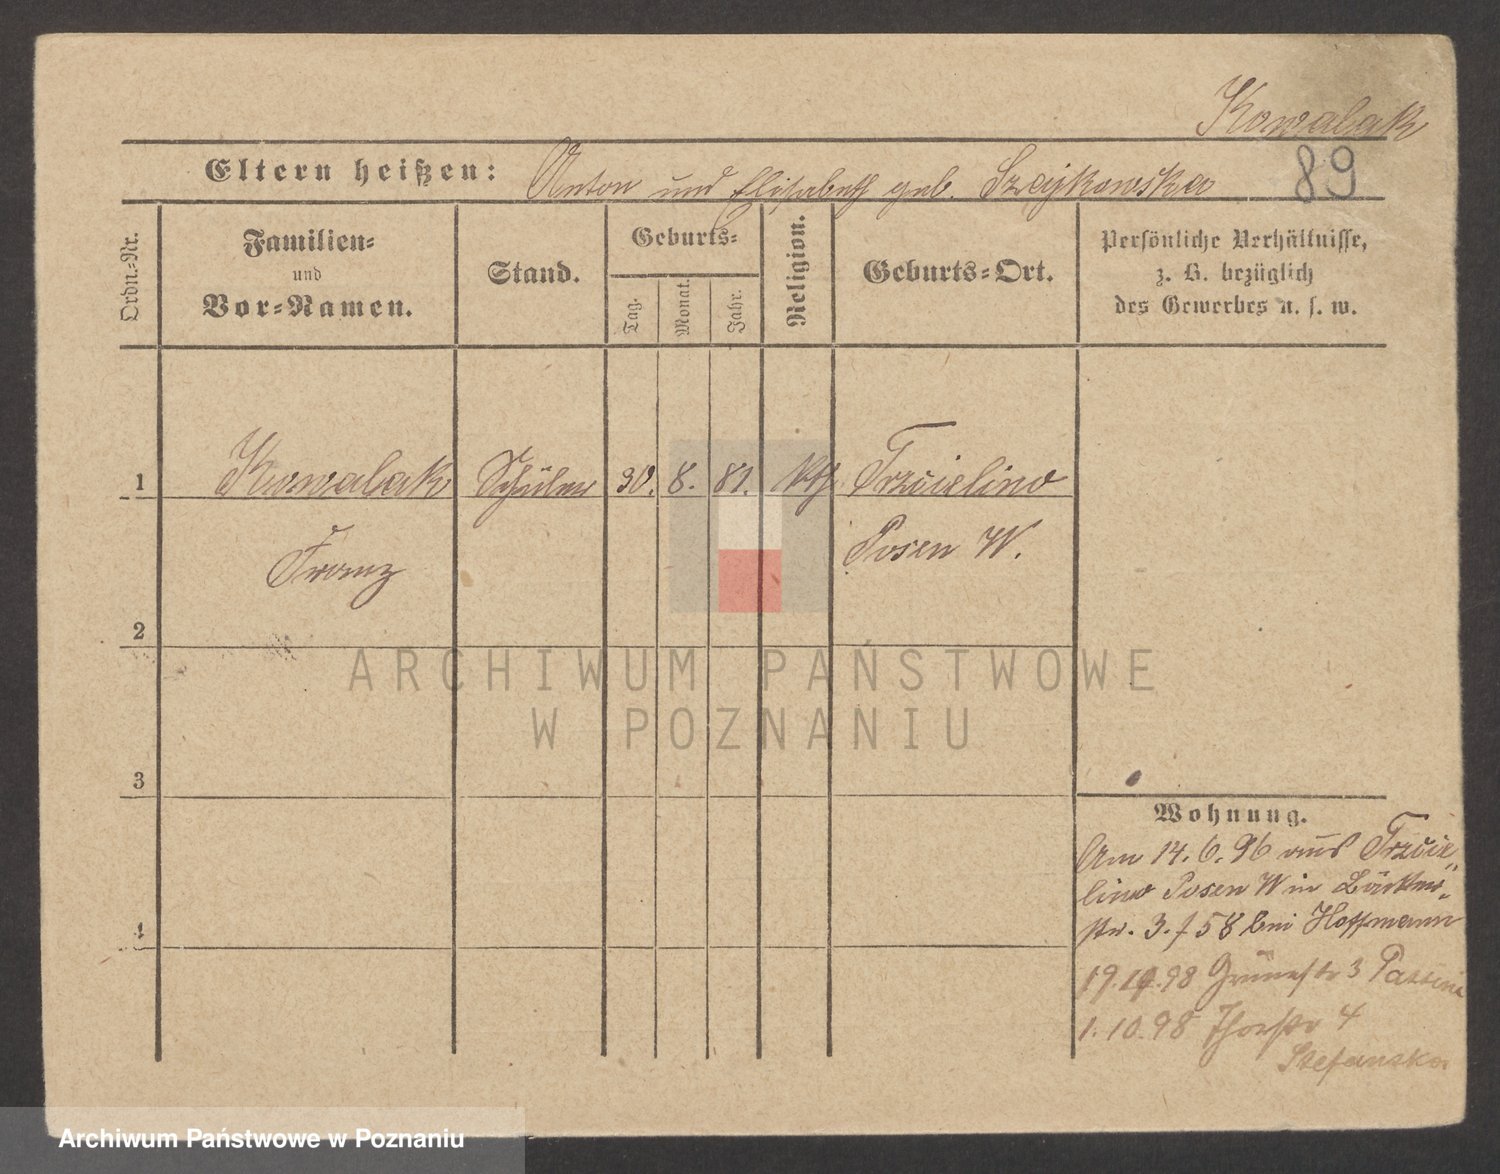 Kowalak
Eltern heißen: Anton und Elisabeth geb. Szajkowska 89
Ordn.-Nr.
Familien-
und
Vor-Namen.
Stand.
Geburts-
Tag.
Monat.
Jahr.
Religion.
Geburts-Ort.
Persönliche Verhältnisse,
z. B. bezüglich
des Gewerbes u. s. w.
1 Kowalak Schüler 30. 8. 81. kth Trzcielino
Franz Posen W.
2
3
4
ARCHIWUM PAŃSTWOWE
W POZNANIU
Wohnung.
Am 14. 6. 96 aus Trzcie„
lino Posen W in Bäcker„
str. 3. / 58 bei Hoffmann
98 Grünestr 3
1. 10. 98 Thorstr 4
Stefanska
Archiwum Państwowe w Poznaniu